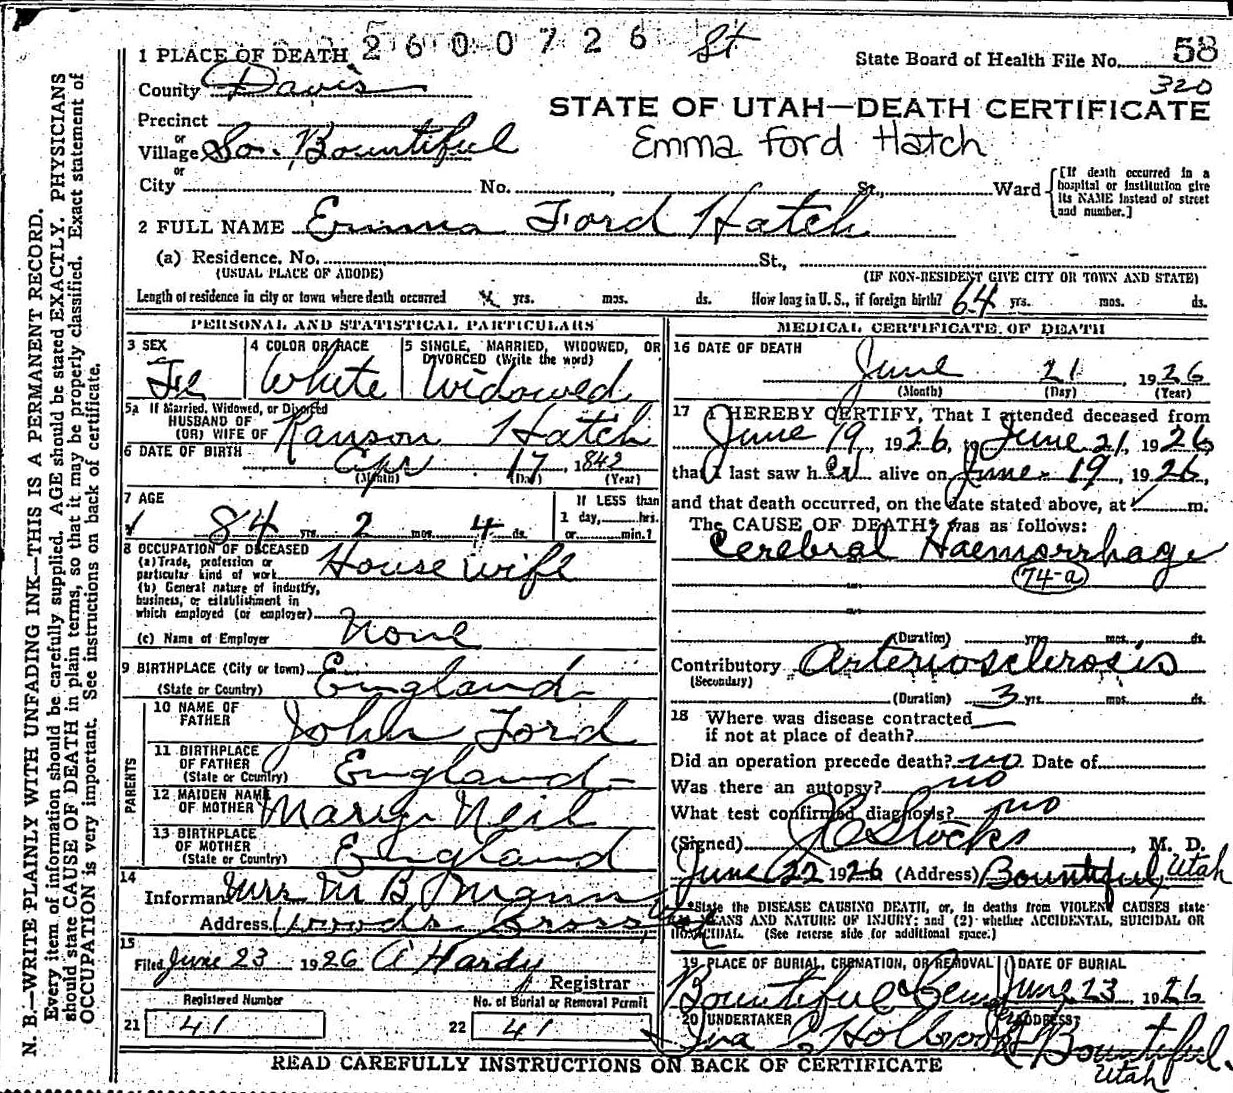 2600726 St
1 PLACE OF DEATH
State Board of Health File No. 58
320
County Davis
STATE OF UTAH—DEATH CERTIFICATE
Precinct
or
Village So. Bountiful
Emma Ford Hatch
or
City No. , St., Ward
[If death occurred in a
hospital or institution give
its NAME instead of street
and number.]
2 FULL NAME Emma Ford Hatch
(a) Residence, No. St.,
(USUAL PLACE OF ABODE) (IF NON-RESIDENT GIVE CITY OR TOWN AND STATE)
Length of residence in city or town where death occurred yrs. mos. ds. How long in U. S., if foreign birth? 64 yrs. mos. ds.
PERSONAL AND STATISTICAL PARTICULARS
3 SEX
Fe
4 COLOR OR RACE
White
5 SINGLE, MARRIED, WIDOWED, OR
DIVORCED (Write the word)
Widowed
5a If Married, Widowed, or Divorced
HUSBAND OF
(OR) WIFE OF Ranson Hatch
6 DATE OF BIRTH
Apr 17, 1842
(Month) (Day) (Year)
7 AGE
84 yrs. 2 mos. 4 ds.
If LESS than
1 day,.....hrs.
or.....min.?
8 OCCUPATION OF DECEASED
(a) Trade, profession or
particular kind of work House wife
(b) General nature of industry,
business, or establishment in
which employed (or employer)
(c) Name of Employer None
9 BIRTHPLACE (City or town)
(State or Country) England
PARENTS
10 NAME OF
FATHER John Ford
11 BIRTHPLACE
OF FATHER
(State or Country) England
12 MAIDEN NAME
OF MOTHER Mary Neil
13 BIRTHPLACE
OF MOTHER
(State or Country) England
14
Informant Mrs M B
Address Woods Cross Utah
15
Filed June 23 1926 A Hardy
Registrar
Registered Number
21 41
No. of Burial or Removal Permit
22 41
MEDICAL CERTIFICATE OF DEATH
16 DATE OF DEATH
June 21, 1926
(Month) (Day) (Year)
17 I HEREBY CERTIFY, That I attended deceased from
June 19 1926, to June 21, 1926,
that I last saw her alive on June 19, 1926,
and that death occurred, on the date stated above, at m.
The CAUSE OF DEATH* was as follows:
Cerebral Haemorrhage
74-a
(Duration) yrs. mos. ds.
Contributory Arteriosclerosis
(Secondary)
(Duration) 3 yrs. mos. ds.
18 Where was disease contracted
if not at place of death?
Did an operation precede death? no Date of
Was there an autopsy? no
What test confirmed diagnosis? no
(Signed) Stocks, M. D.
June 22 1926 (Address) Bountiful Utah
*State the DISEASE CAUSING DEATH, or, in deaths from VIOLENT CAUSES state
(1) MEANS AND NATURE OF INJURY; and (2) whether ACCIDENTAL, SUICIDAL OR
HOMICIDAL. (See reverse side for additional space.)
19 PLACE OF BURIAL, CREMATION, OR REMOVAL
Bountiful Cem
DATE OF BURIAL
June 23, 1926
20 UNDERTAKER
Holbrook
ADDRESS
Bountiful
Utah
READ CAREFULLY INSTRUCTIONS ON BACK OF CERTIFICATE
N. B.—WRITE PLAINLY WITH UNFADING INK—THIS IS A PERMANENT RECORD.
Every item of information should be carefully supplied. AGE should be stated EXACTLY. PHYSICIANS
should state CAUSE OF DEATH in plain terms, so that it may be properly classified. Exact statement of
OCCUPATION is very important. See instructions on back of certificate.